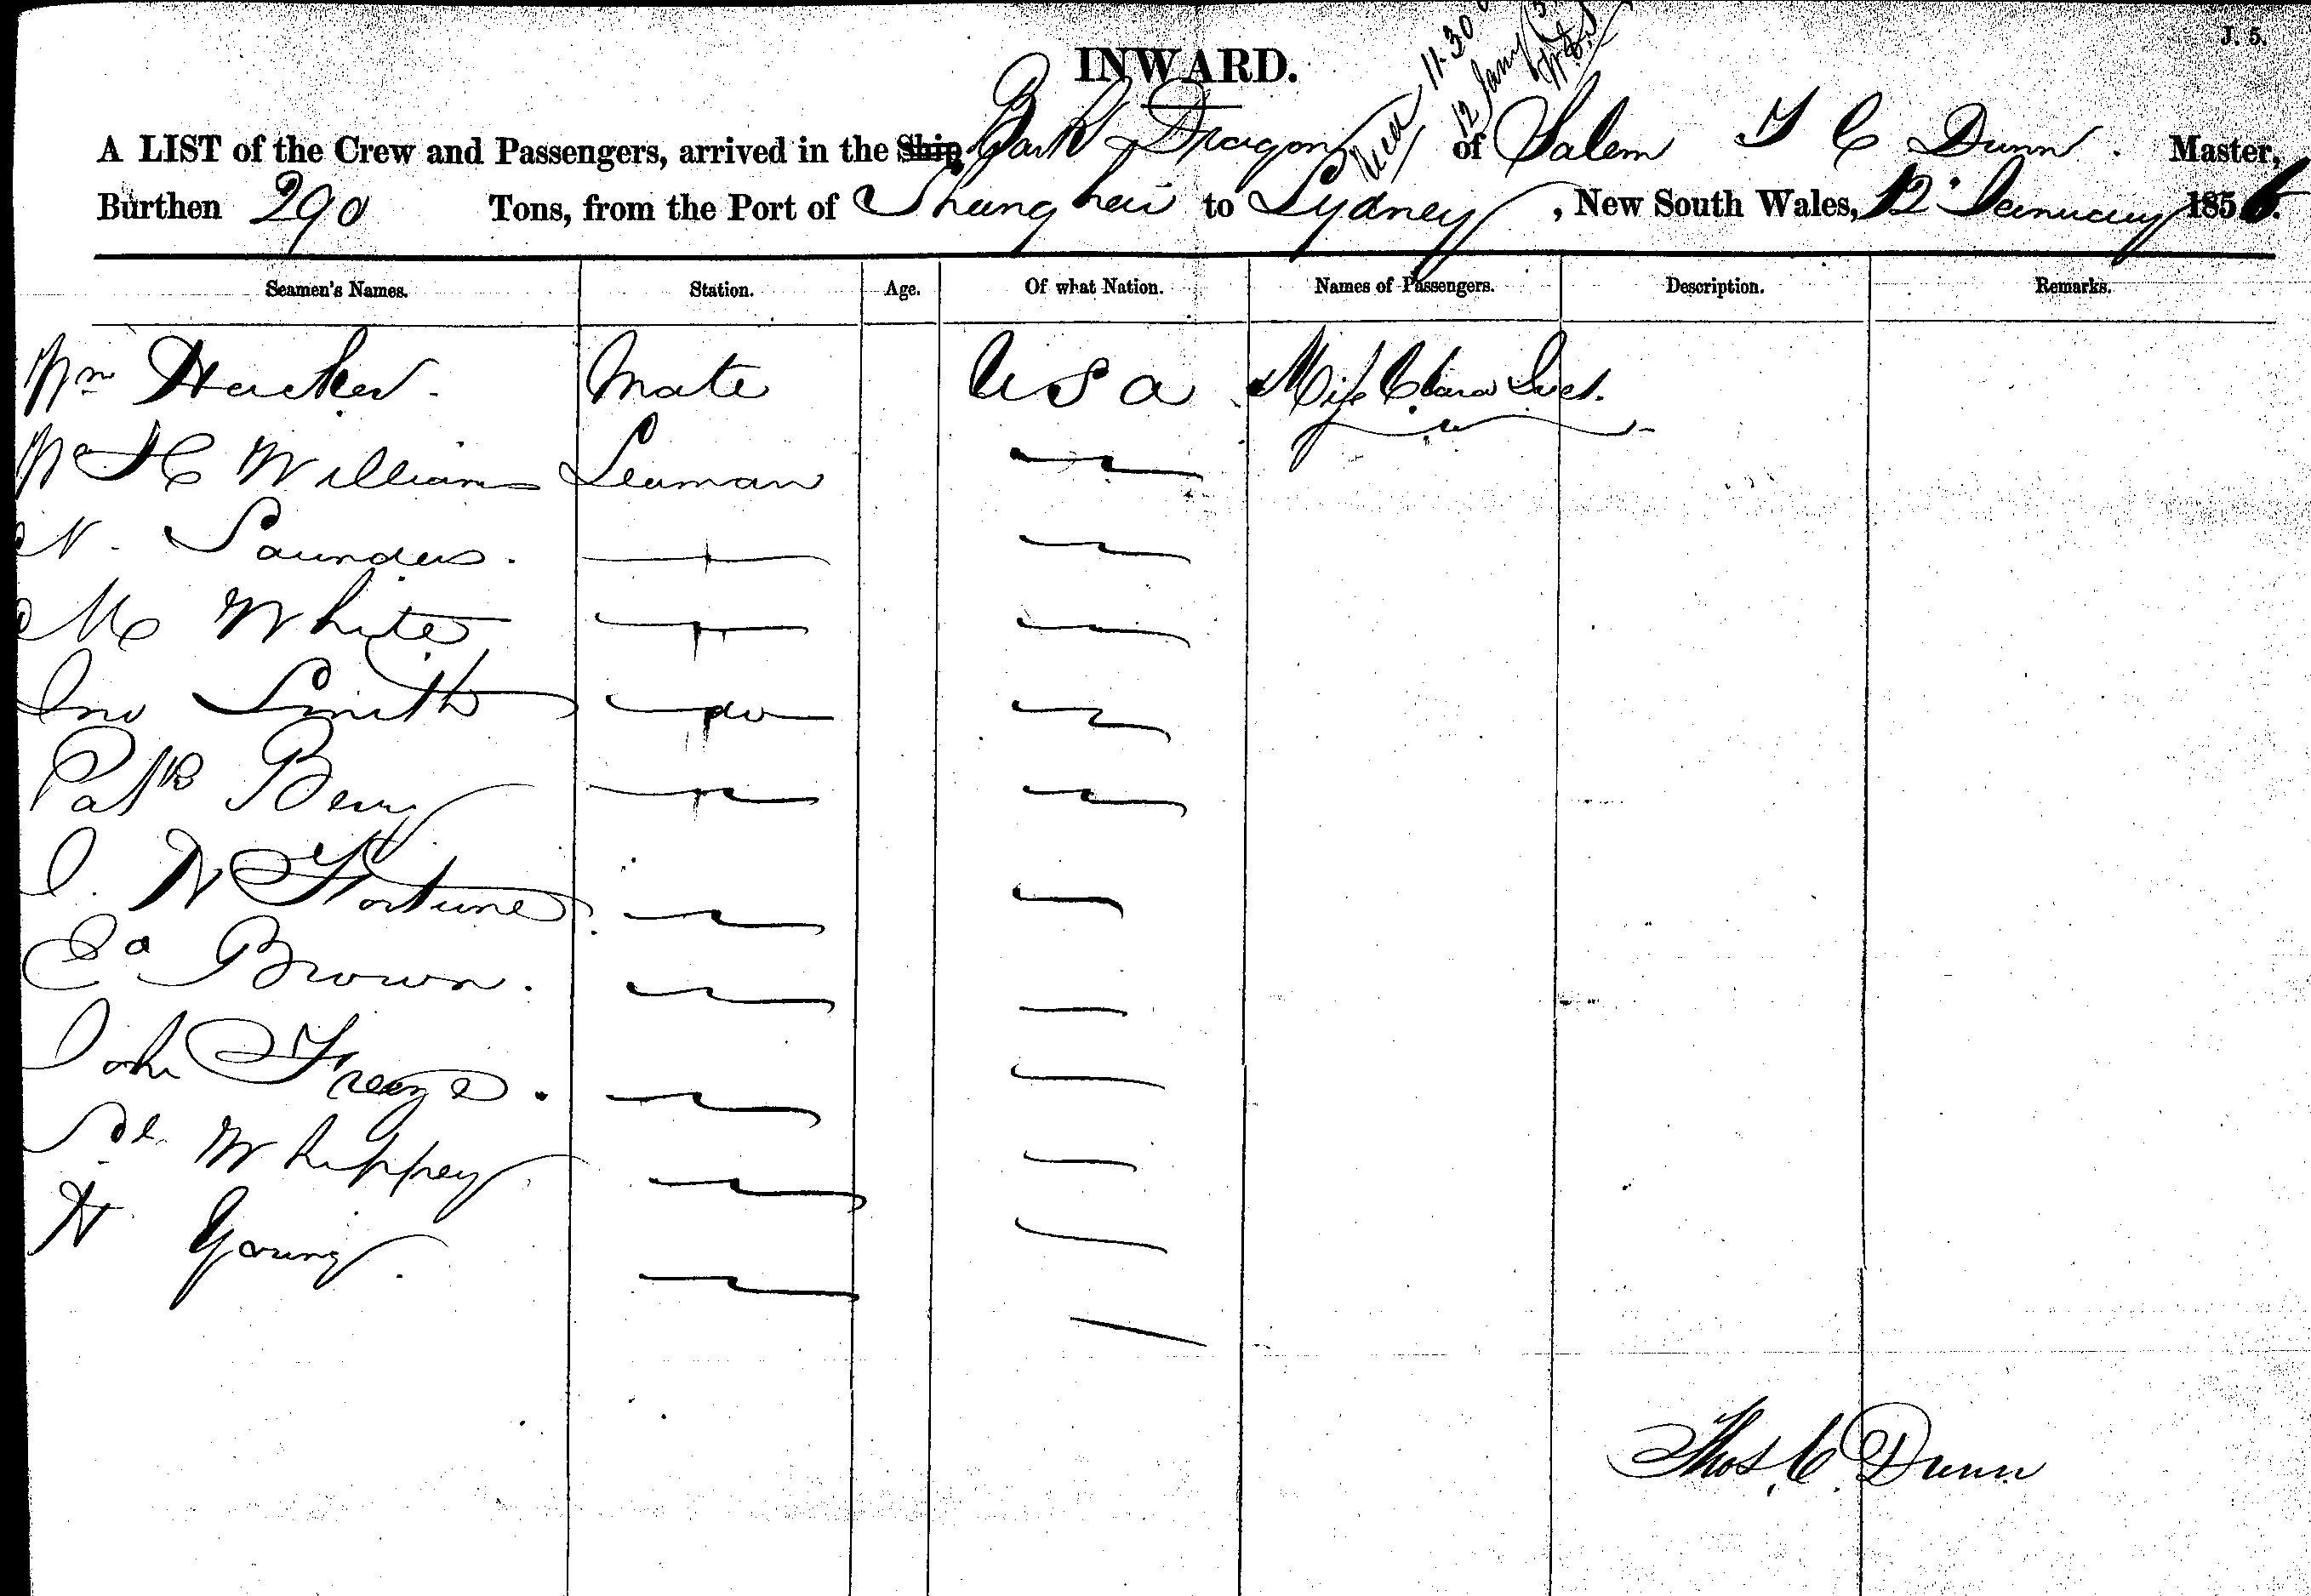 J. 5.
INWARD.
11.30
12 Jany
A LIST of the Crew and Passengers, arrived in the Ship Bark Dragon of Salem T C Dunn. Master,
Burthen 290 Tons, from the Port of Shanghai to Sydney, New South Wales, 12 January 1856.
Seamen's Names. Station. Age. Of what Nation. Names of Passengers. Description. Remarks.
Wm Hacker. Mate U S A Miss Clara
Wm H C Williams Seaman
N. Saunders.
M White
Jno Smith do
Patk Berry
J. N Fortune
Ed Brown.
John
Whippey
H Young.
Thos. C. Dunn